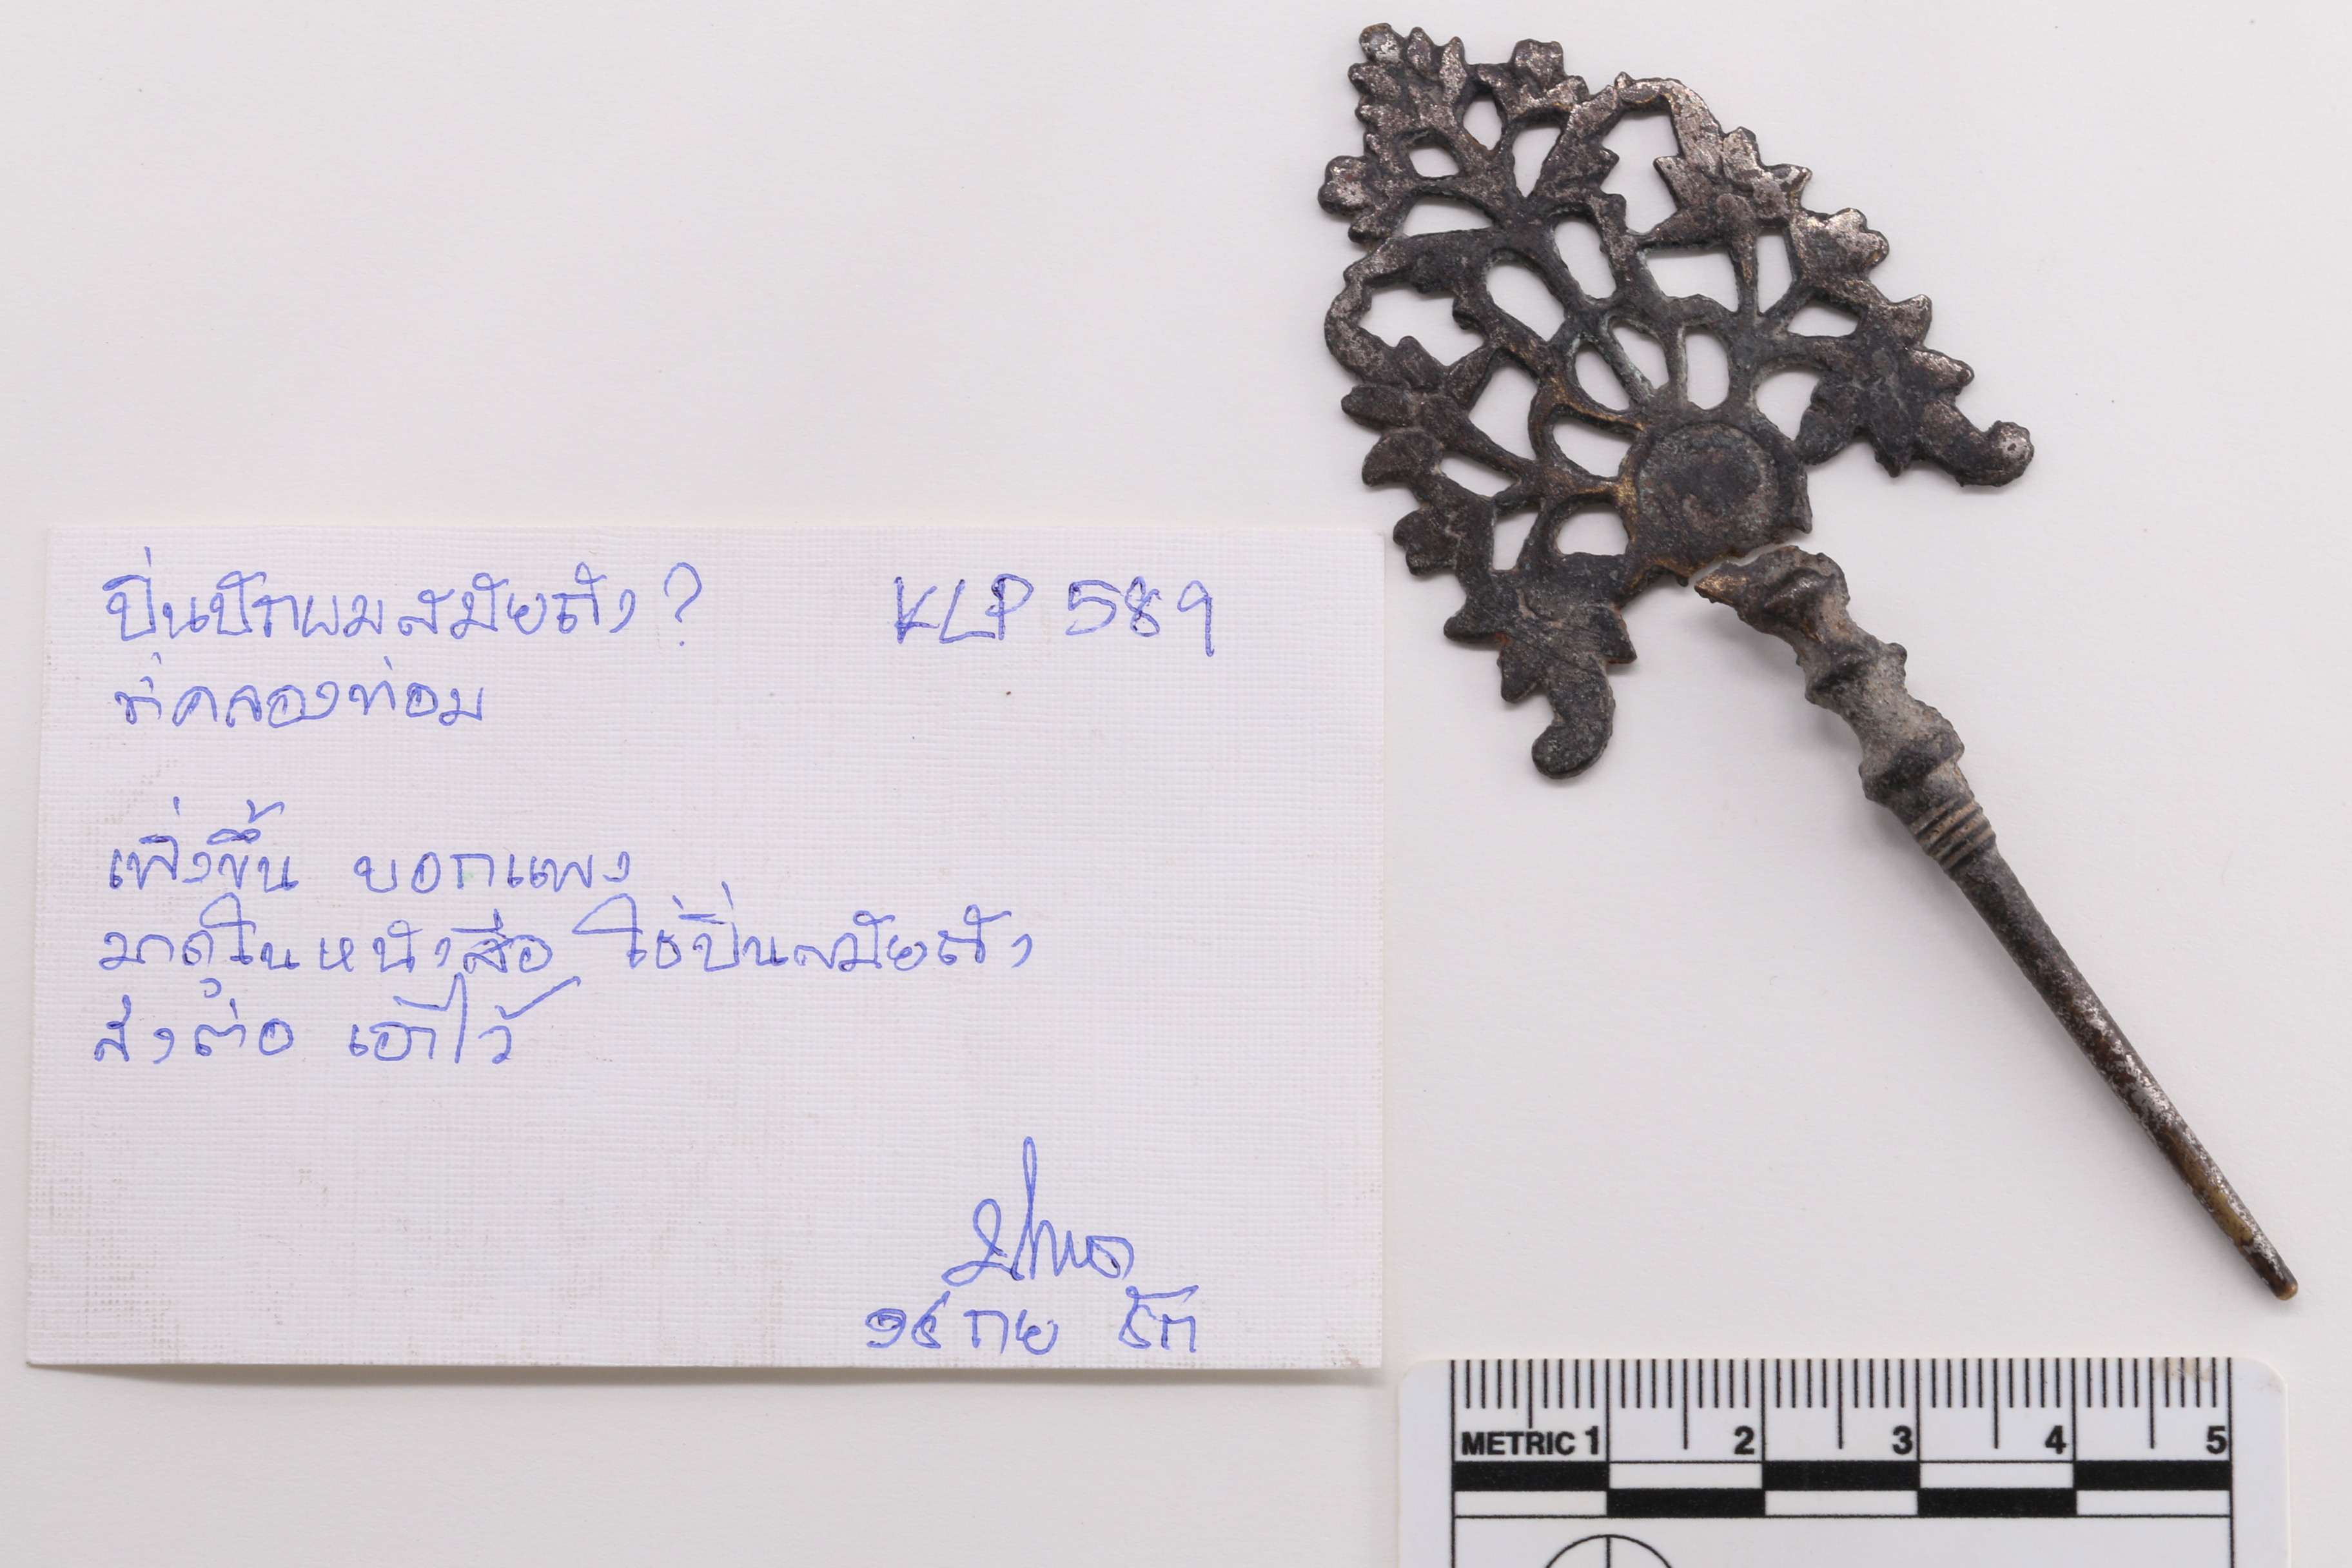 ปิ่นปักผมสมัยถัง? KLP 589
ที่คลองท่อม
เพิ่งขึ้น บอกแพง
มาดูในหนังสือ ใช่ปิ่นสมัยถัง
ส่งต่อ เอาไว้
๑๕ กย
METRIC 1 2 3 4 5